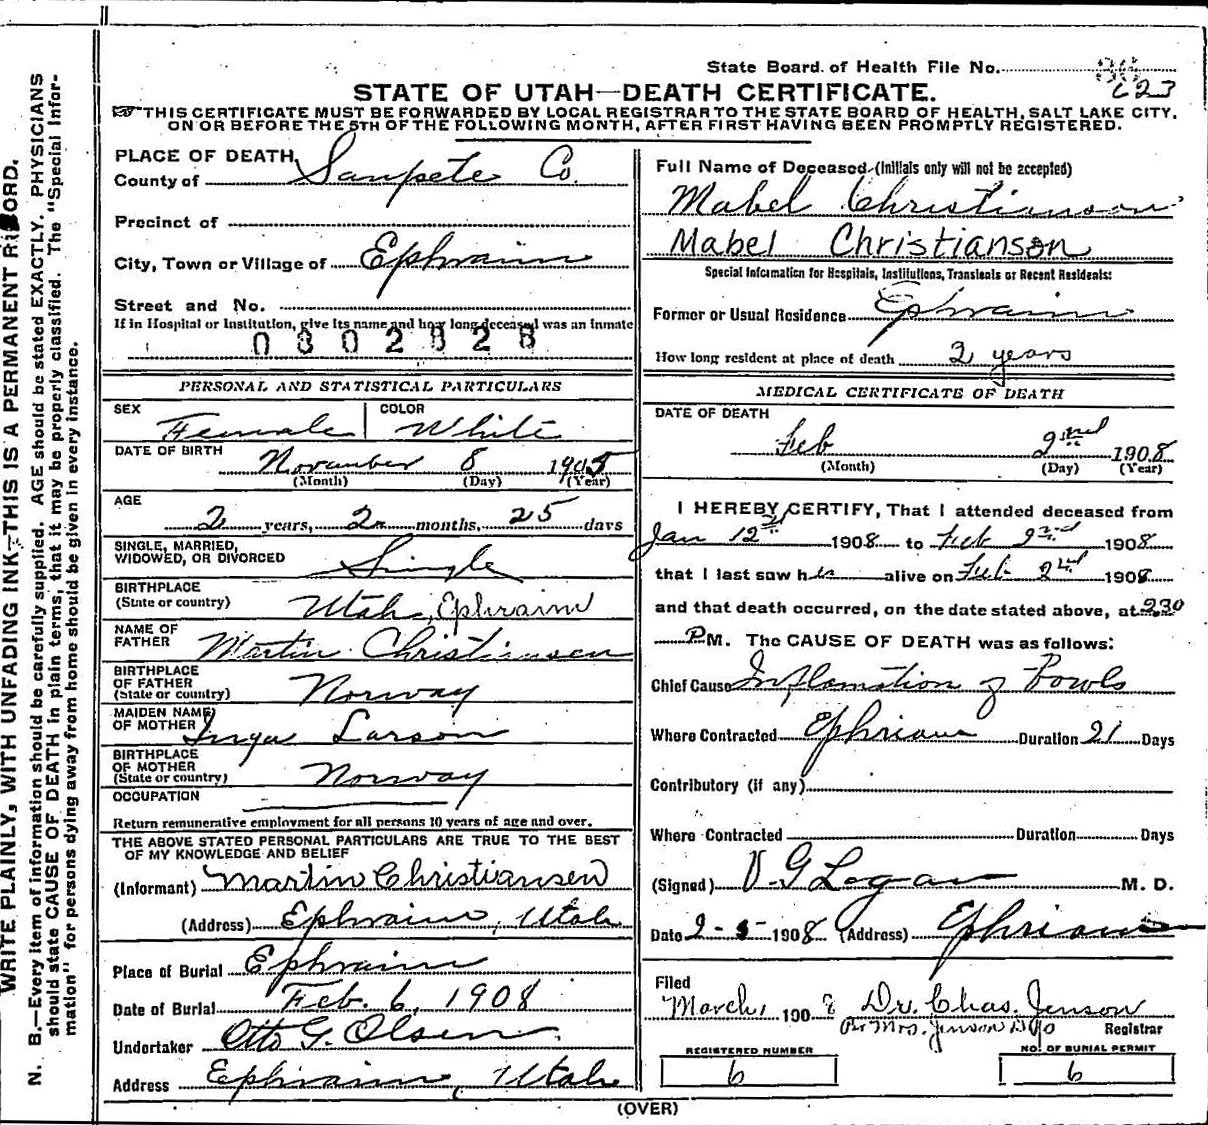 State Board of Health File No. 623
STATE OF UTAH—DEATH CERTIFICATE.
THIS CERTIFICATE MUST BE FORWARDED BY LOCAL REGISTRAR TO THE STATE BOARD OF HEALTH, SALT LAKE CITY,
ON OR BEFORE THE 5TH OF THE FOLLOWING MONTH, AFTER FIRST HAVING BEEN PROMPTLY REGISTERED.
WRITE PLAINLY, WITH UNFADING INK—THIS IS A PERMANENT RECORD.
N. B.—Every item of information should be carefully supplied. AGE should be stated EXACTLY. PHYSICIANS
should state CAUSE OF DEATH in plain terms, that it may be properly classified. The "Special Infor-
mation" for persons dying away from home should be given in every instance.
PLACE OF DEATH
County of Sanpete Co.
Precinct of
City, Town or Village of Ephraim
Street and No.
If in Hospital or Institution, give its name and how long deceased was an inmate
0302828
PERSONAL AND STATISTICAL PARTICULARS
SEX Female COLOR White
DATE OF BIRTH November 8 1905
(Month) (Day) (Year)
AGE
2 years, 2 months, 25 days
SINGLE, MARRIED,
WIDOWED, OR DIVORCED Single
BIRTHPLACE
(State or country) Utah, Ephraim
NAME OF
FATHER Martin Christiansen
BIRTHPLACE
OF FATHER
(State or country) Norway
MAIDEN NAME
OF MOTHER Inga Larson
BIRTHPLACE
OF MOTHER
(State or country) Norway
OCCUPATION
Return remunerative employment for all persons 10 years of age and over.
THE ABOVE STATED PERSONAL PARTICULARS ARE TRUE TO THE BEST
OF MY KNOWLEDGE AND BELIEF
(Informant) Martin Christiansen
(Address) Ephraim, Utah
Place of Burial Ephraim
Date of Burial Feb. 6, 1908
Undertaker Otto G. Olsen
Address Ephraim, Utah
Full Name of Deceased (Initials only will not be accepted)
Mabel Christianson
Mabel Christianson
Special Information for Hospitals, Institutions, Transients or Recent Residents:
Former or Usual Residence Ephraim
How long resident at place of death 2 years
MEDICAL CERTIFICATE OF DEATH
DATE OF DEATH
Feb 2nd 1908
(Month) (Day) (Year)
I HEREBY CERTIFY, That I attended deceased from
Jan 12 1908 to Feb 2nd 1908
that I last saw her alive on Feb 2nd 1908
and that death occurred, on the date stated above, at 230
P M. The CAUSE OF DEATH was as follows:
Chief Cause Inflamation of Bowls
Where Contracted Ephriam Duration 21 Days
Contributory (if any)
Where Contracted Duration Days
(Signed) D. G Logan M. D.
Date 2-5-1908 (Address) Ephriam
Filed
March, 1908 Dr. Chas. Jenson
Per Mrs. Jenson Registrar
REGISTERED NUMBER
6
NO. OF BURIAL PERMIT
6
(OVER)